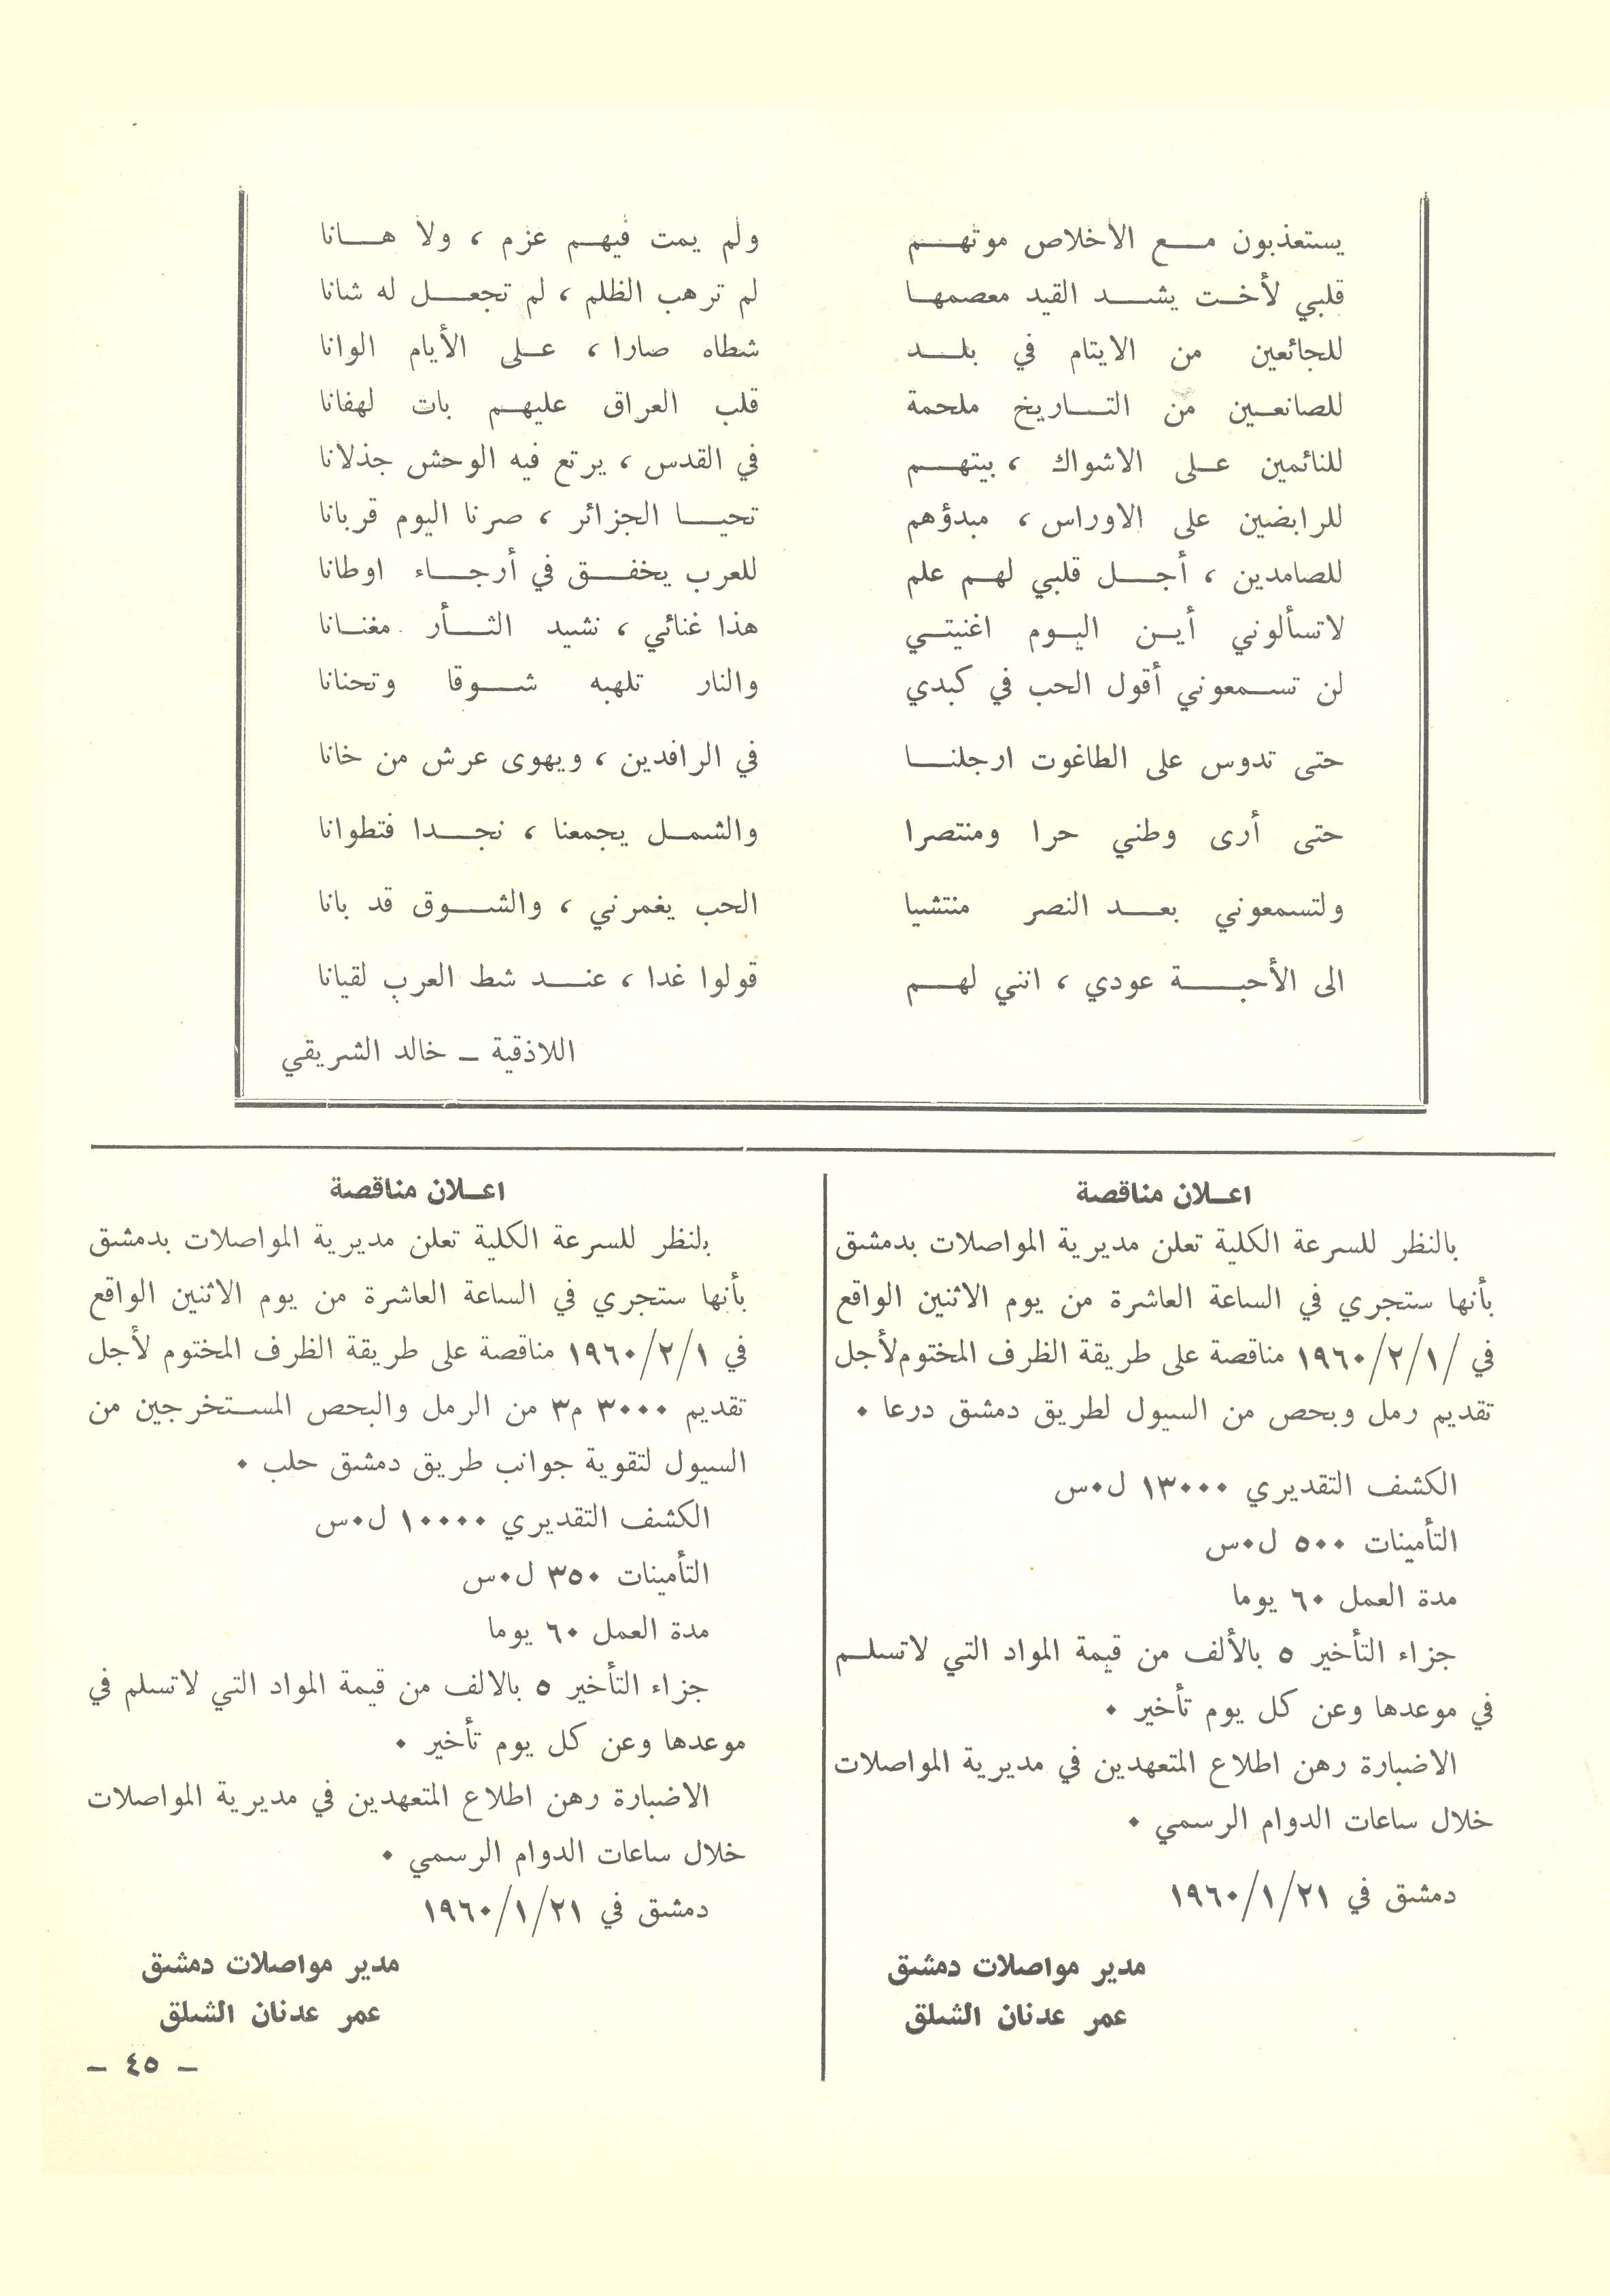 يستعذبون مع الاخلاص موتهم ولم يمت فيهم عزم ، ولا هانا
قلبي لأخت يشد القيد معصمها لم ترهب الظلم ، لم تجعل له شانا
للجائعين من الايتام في بلد شطاه صارا ، على الأيام الوانا
للصانعين من التاريخ ملحمة قلب العراق عليهم بات لهفانا
للنائمين على الاشواك ، بيتهم في القدس ، يرتع فيه الوحش جذلانا
للرابضين على الاوراس ، مبدؤهم تحيا الجزائر ، صرنا اليوم قربانا
للصامدين ، أجل قلبي لهم علم للعرب يخفق في أرجاء اوطانا
لاتسألوني أين اليوم اغنيتي هذا غنائي ، نشيد الثأر مغنانا
لن تسمعوني أقول الحب في كبدي والنار تلهبه شوقا وتحنانا
حتى تدوس على الطاغوت ارجلنا في الرافدين ، ويهوى عرش من خانا
حتى أرى وطني حرا ومنتصرا والشمل يجمعنا ، نجدا فتطوانا
ولتسمعوني بعد النصر منتشيا الحب يغمرني ، والشوق قد بانا
الى الأحبة عودي ، انني لهم قولوا غدا ، عند شط العرب لقيانا
اللاذقية – خالد الشريقي
اعلان مناقصة
بالنظر للسرعة الكلية تعلن مديرية المواصلات بدمشق
بأنها ستجري في الساعة العاشرة من يوم الاثنين الواقع
في /١/٢/١٩٦٠ مناقصة على طريقة الظرف المختوم لأجل
تقديم رمل وبحص من السيول لطريق دمشق درعا ٠
الكشف التقديري ١٣٠٠٠ ل٠س
التأمينات ٥٠٠ ل٠س
مدة العمل ٦٠ يوما
جزاء التأخير ٥ بالألف من قيمة المواد التي لاتسلم
في موعدها وعن كل يوم تأخير ٠
الاضبارة رهن اطلاع المتعهدين في مديرية المواصلات
خلال ساعات الدوام الرسمي ٠
دمشق في ٢١/١/١٩٦٠
مدير مواصلات دمشق
عمر عدنان الشلق
اعلان مناقصة
بلنظر للسرعة الكلية تعلن مديرية المواصلات بدمشق
بأنها ستجري في الساعة العاشرة من يوم الاثنين الواقع
في ١/٢/١٩٦٠ مناقصة على طريقة الظرف المختوم لأجل
تقديم ٣٠٠٠ م٣ من الرمل والبحص المستخرجين من
السيول لتقوية جوانب طريق دمشق حلب ٠
الكشف التقديري ١٠٠٠٠ ل٠س
التأمينات ٣٥٠ ل٠س
مدة العمل ٦٠ يوما
جزاء التأخير ٥ بالالف من قيمة المواد التي لاتسلم في
موعدها وعن كل يوم تأخير ٠
الاضبارة رهن اطلاع المتعهدين في مديرية المواصلات
خلال ساعات الدوام الرسمي ٠
دمشق في ٢١/١/١٩٦٠
مدير مواصلات دمشق
عمر عدنان الشلق
– ٤٥ –